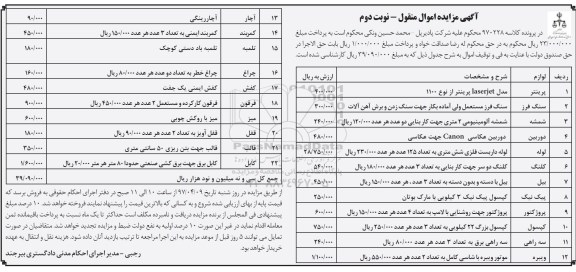 آگهی مزایده اموال منقول - نوبت دوم
در پرونده کلاسه ۹۷۰۲۲۸ محکوم علیه شرکت پادیریل - محمد حسین ونکی محکوم است به پرداخت مبلغ
۲۳۱/۰۰۰/۰۰۰ ریال محکوم به در حق محکوم له رضا صداقت خواه و پرداخت مبلغ ۱/۰۰۰/۰۰۰ ریال بابت حق الاجرا در
حق صندوق دولت با عنایت به فی و توقیف اموال به شرح جدول ذیل که به مبلغ ۳۹/۰۹۰/۰۰۰ ریال کارشناسی شده است.
ردیف لوازم شرح و مشخصات ارزش به ریال
۱ پرینتر مدل laserjet پرینتر از نوع ۱۱۰۰ ۹۰۰/۰۰۰
۲ سنگ فرز سنگ فرز مستعمل ولی آماده بکار جهت سنگ زنی و برش آهن آلات ۳۰۰/۰۰۰
۳ شمشه شمشه آلومینیومی ۲ متری جهت کار بنایی دو عدد هر عدد ۱۲۰/۰۰۰ ریال ۲۴۰/۰۰۰
۴ دوربین دوربین عکاسی Canon جهت عکاسی ۶۸۰/۰۰۰
۵ لوله لوله داربست فلزی شش متری به تعداد ۱۲۵ عدد هر عدد ۲۳۰/۰۰۰ ریال ۲۸/۷۵۰/۰۰۰
۶ کلنگ کلنگ دو سر جهت کار بنایی به تعداد ۳ عدد هر عدد ۱۸۰/۰۰۰ ریال ۵۴۰/۰۰۰
۷ بیل بیل با دسته و بدون دسته به تعداد ۳ عدد، هر عدد ۱۵۰/۰۰۰ ریال ۴۵۰/۰۰۰
۸ پیک نیک کپسول پیک نیک ۳ کیلویی با مارک بوتان ۳۵۰/۰۰۰
۹ پروژکتور پروژکتور جهت روشنایی با لامپ به تعداد ۴ عدد هر عدد ۱۵۰/۰۰۰ ریال ۶۰۰/۰۰۰
۱۰ کپسول کپسول بزرگ ۲۲ کیلویی به تعداد ۳ عدد هر عدد ۲۵۰/۰۰۰ ریال ۷۵۰/۰۰۰
۱۱ سه راهی سه راهی برق به تعداد ۳ عدد هر عدد ۸۰/۰۰۰ ریال ۲۴۰/۰۰۰
۱۲ ویبره موتور ویبره با شاسی کامل به تعداد ۲ عدد هر عدد ۵۵۰/۰۰۰ ریال ۱/۱۰۰/۰۰۰
۱۳ آچار آچار رینگی ۹۰/۰۰۰
۱۴ کمربند کمربند ایمنی به تعداد ۳ عدد هر عدد ۱۵۰/۰۰۰ ریال ۴۵۰/۰۰۰
۱۵ تلمبه تلمبه باد دستی کوچک ۱۸۰/۰۰۰
۱۶ چراغ چراغ خطر به تعداد دو عدد هر عدد ۸۰/۰۰۰ ریال ۱۶۰/۰۰۰
۱۷ کفش کفش ایمنی یک جفت ۴۸۰/۰۰۰
۱۸ فرقون فرقون کارکرده و مستعمل ۲ عدد هر عدد ۴۵۰/۰۰۰ ریال ۹۰۰/۰۰۰
۱۹ میز میز با روکش چوبی ۶۰۰/۰۰۰
۲۰ قفل قفل آویز به تعداد ۲ عدد هر عدد ۹۰/۰۰۰ ریال ۱۸۰/۰۰۰
۲۱ قالب قالب جهت بتن ریزی ۵۰ سانتی متری ۲۵۰/۰۰۰
۲۲ کابل کابل برق جهت برق کشی صنعتی حدودا ۸۰ متر هر متر ۲۰/۰۰۰ ریال ۱/۶۰۰/۰۰۰
جمع کل سی و نه میلیون و نود هزار ریال ۳۹/۰۹۰/۰۰۰
از طریق مزایده در روز شنبه تاریخ ۹۷/۰۴/۰۹ از ساعت ۱۰ الی ۱۱ صبح در دفتر اجرای احکام حقوقی به فروش برسد که
قیمت پایه از بهای ارزیابی شروع و به کسانی که بالاترین قیمت را پیشنهاد نمایند فروخته خواهد شد. ۱۰ درصد مبلغ
پیشنهادی فی المجلس از برنده مزایده دریافت و نامبرده مکلف است حداکثر تا یک ماه نسبت به پرداخت باقیمانده ثمن
معامله اقدام نماید در غیر این صورت ۱۰ درصد اولیه به نفع دولت ضبط و مزایده تجدید خواهد شد. متقاضیان در صورت
تمایل می توانند ۵ روز قبل از موعد مزایده به این اجرا مراجعه تا ترتیب بازدید آنان داده شود. هزینه نقل و انتقال به عهده
خریدار خواهد بود.
رجبی - مدیر اجرای احکام مدنی دادگستری بیرجند